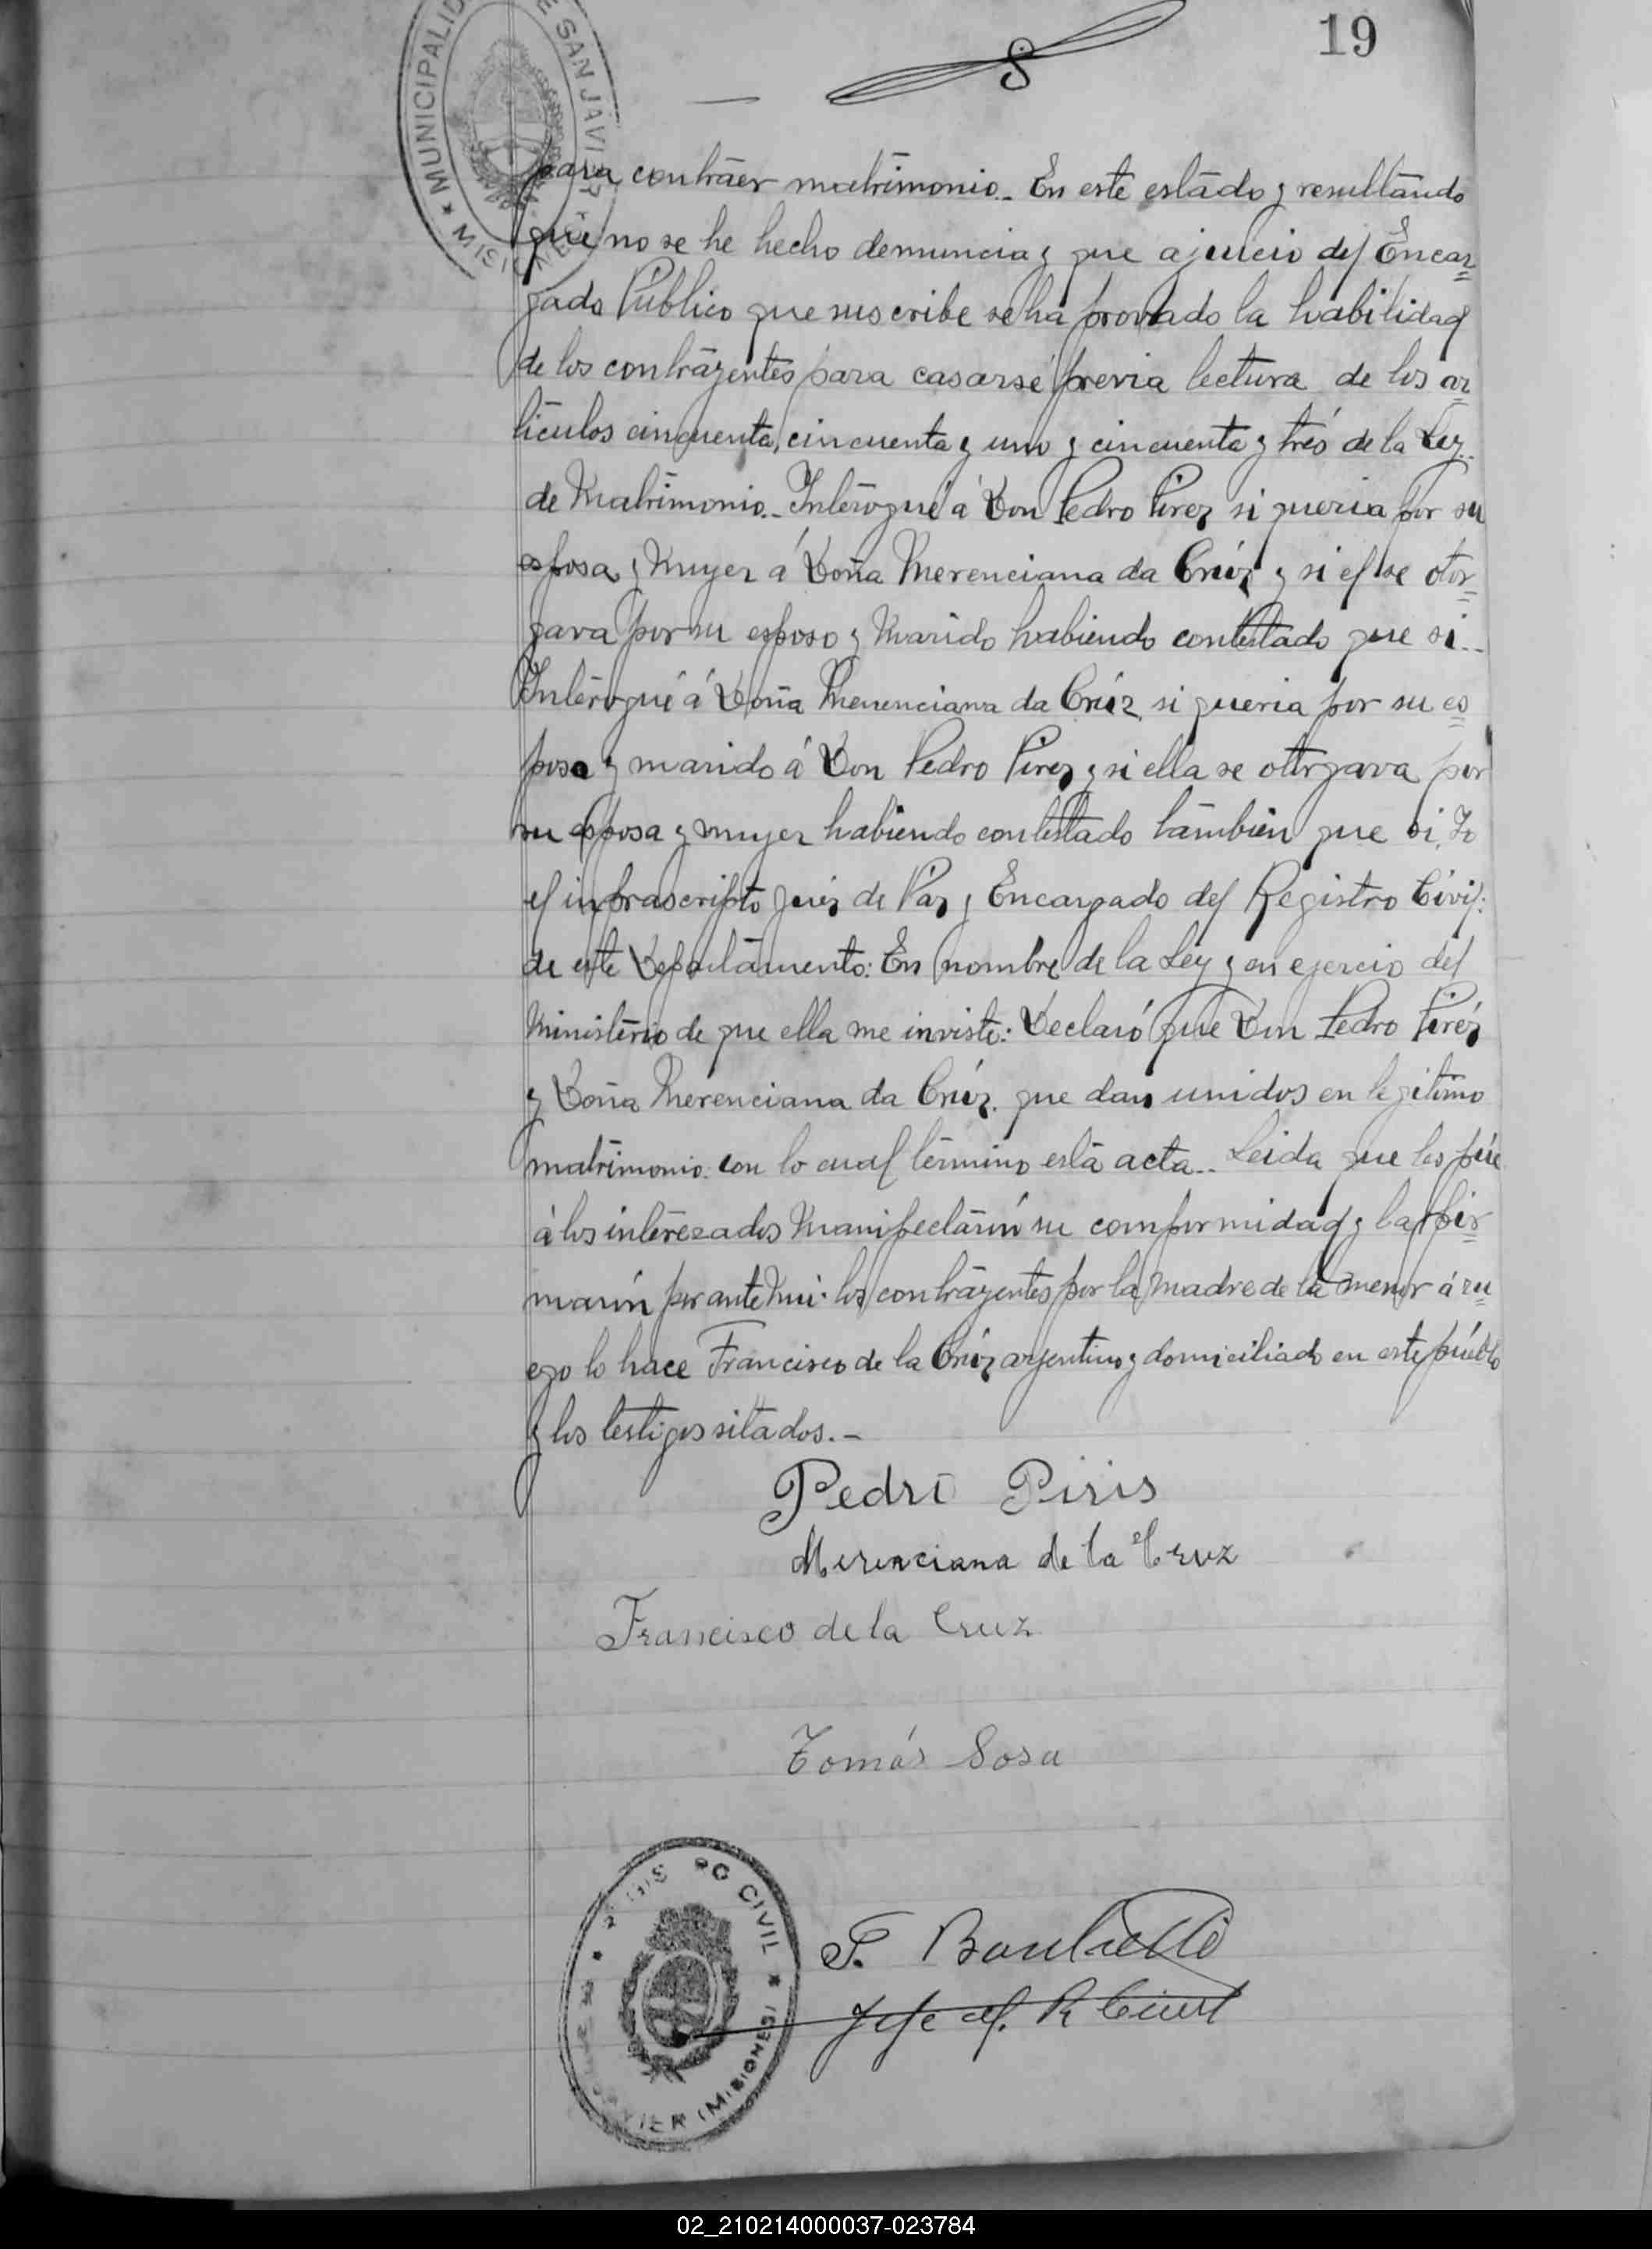 19
MUNICIPALID E SAN JAVIER MISIONES
8
para contraer matrimonio.- En este estado y resultando
que no se he hecho denuncia y que a jucio del Encar=
gado Público que suscribe se ha provado la habilidad
de los contrayentes para casarse previa lectura de los ar=
ticulos cincuenta, cincuenta y uno y cincuenta y trés de la Ley..
de Matrimonio.- Interogué á Don Pedro Pirez si queria por su
esposa y Muyer á Doña Merenciana da Crúz y si el se otor=
gava por su esposo y Marido habiendo contestado que si..
Interogué á Doña Merenciana da Crúz si queria por su es=
poso y marido á Don Pedro Pirez y si ella se otorgava por
su esposa y muyer habiendo contestado también que si, Yo
el infrascripto Juéz de Paz y Encargado del Registro Civil:
de este Departamento: En nombre de la Ley y en ejercio del
Ministério de que ella me inviste: Declaró que Don Pedro Piréz
y Doña Merenciana da Crúz. que dan unidos en legitimo
matrimonio. con lo cual términó esta acta.. Leida que les fúe
á los interezados Manifectarón su comformidad y la fir=
marón por ante Mi. los contrayentes por la Madre de la menor á ru=
ego lo hace Francisco de la Crúz argentino y domiciliado en este puéblo
y los testigos sitados.-
Pedro Piris
Merenciana de la Cruz
Francisco de la Cruz
Tomás Sosa
CIVIL (MISIONES)
Jefe del R Civil
02_210214000037-023784